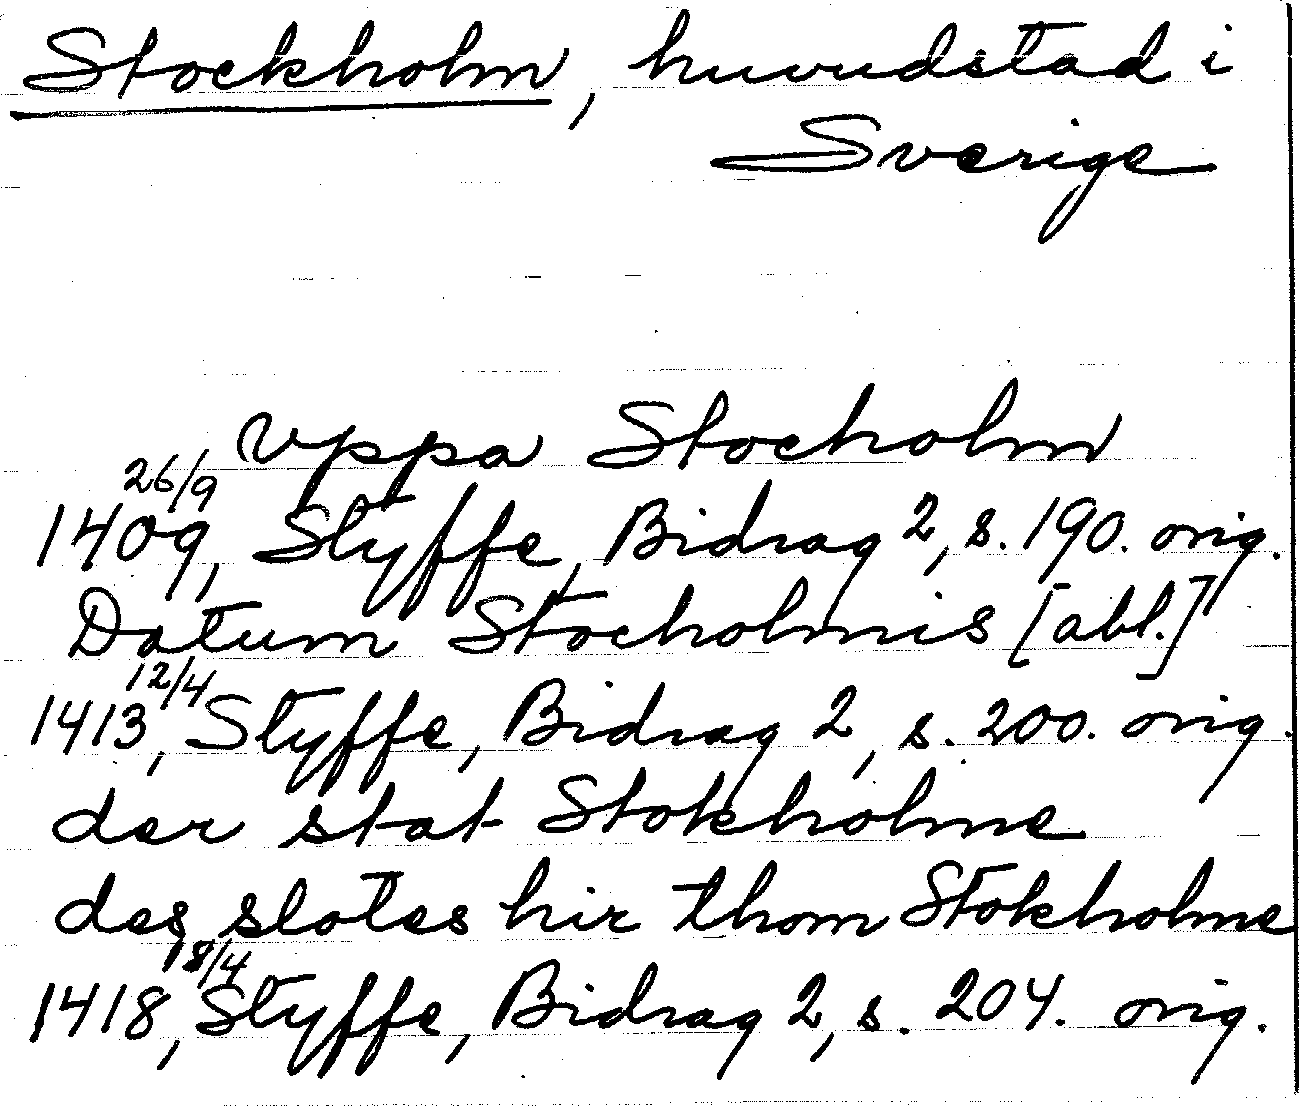 Stockholm, huvudstad i
Sverige
vppa Stocholm
26/9
1409, Styffe, Bidrag 2, s. 190. orig.
Datum Stocholmis [abl.]
12/4
1413, Styffe, Bidrag 2, s. 200. orig.
der stat Stokholme
des slotes hir thom Stokholme
18/4
1418, Styffe, Bidrag 2, s. 204. orig.